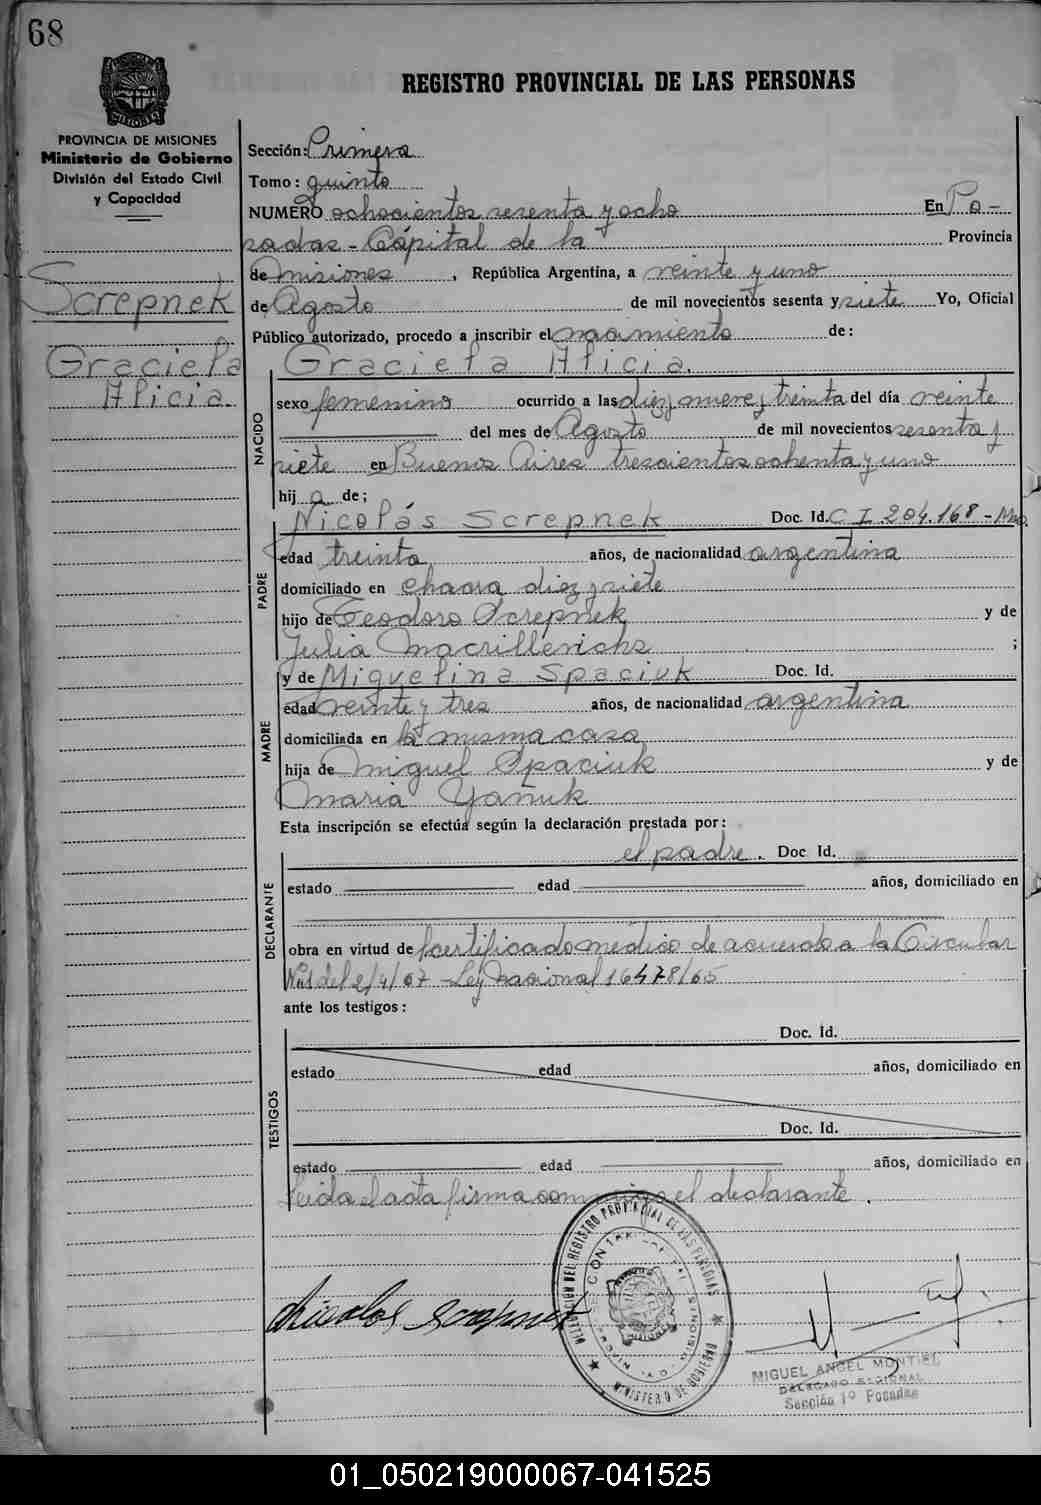 68
REGISTRO PROVINCIAL DE LAS PERSONAS
PROVINCIA DE MISIONES
Ministerio de Gobierno
División del Estado Civil
y Capacidad
Screpnek
Graciela
Alicia.
Sección: Primera
Tomo: quinto
NUMERO ochocientos sesenta y ocho En Po-
sadas - Cápital de la Provincia
de Misiones, República Argentina, a veinte y uno
de Agosto de mil novecientos sesenta y siete Yo, Oficial
Público autorizado, procedo a inscribir el nacimiento de:
Graciela Alicia.
NACIDO
sexo femenino ocurrido a las diez nueve y treinta del día veinte
del mes de Agosto de mil novecientos sesenta y
siete en Buenos Aires trescientos ochenta y uno
hij a de;
PADRE
Nicolás Screpnek Doc. Id. C I 204.168 - Mns
edad treinta años, de nacionalidad argentina
domiciliado en chacra diez y siete
hijo de Teodoro Screpnek y de
Julia ;
MADRE
y de Miguelina Spaciuk Doc. Id.
edad veinte y tres años, de nacionalidad argentina
domiciliada en la misma casa
hija de Miguel Spaciuk y de
Maria Yañuk
Esta inscripción se efectúa según la declaración prestada por:
DECLARANTE
el padre. Doc Id.
estado edad años, domiciliado en
obra en virtud de certificado médico de acuerdo a la Circular
del 2/4/67 - Ley Nacional 16478/65
ante los testigos:
TESTIGOS
Doc. Id.
estado edad años, domiciliado en
Doc. Id.
estado edad años, domiciliado en
Leida el acta firma conmigo el declarante.
Nicolas Screpnek
DELEGACION DEL REGISTRO PROVINCIAL DE LAS PERSONAS
MINISTERIO DE GOBIERNO
MISIONES
MIGUEL ANGEL MONTIEL
DELEGADO REGIONAL
Sección 1º Posadas
01_050219000067-041525